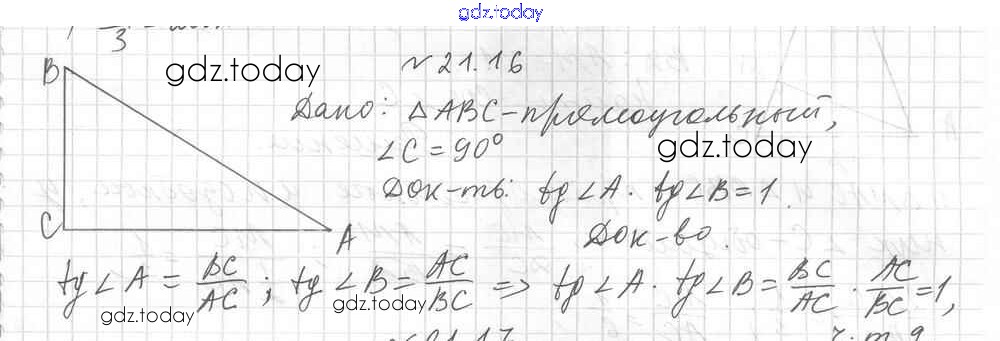 gdz.today
B
gdz.today
№ 21.16
Дано: △ABC - прямоугольный,
∠C = 90°
gdz.today
Док-ть: tg∠A · tg∠B = 1.
C
A
Док-во.
tg∠A = BC/AC ; tg∠B = AC/BC => tg∠A · tg∠B = BC/AC · AC/BC = 1,
gdz.today
gdz.today
ч.т.д.